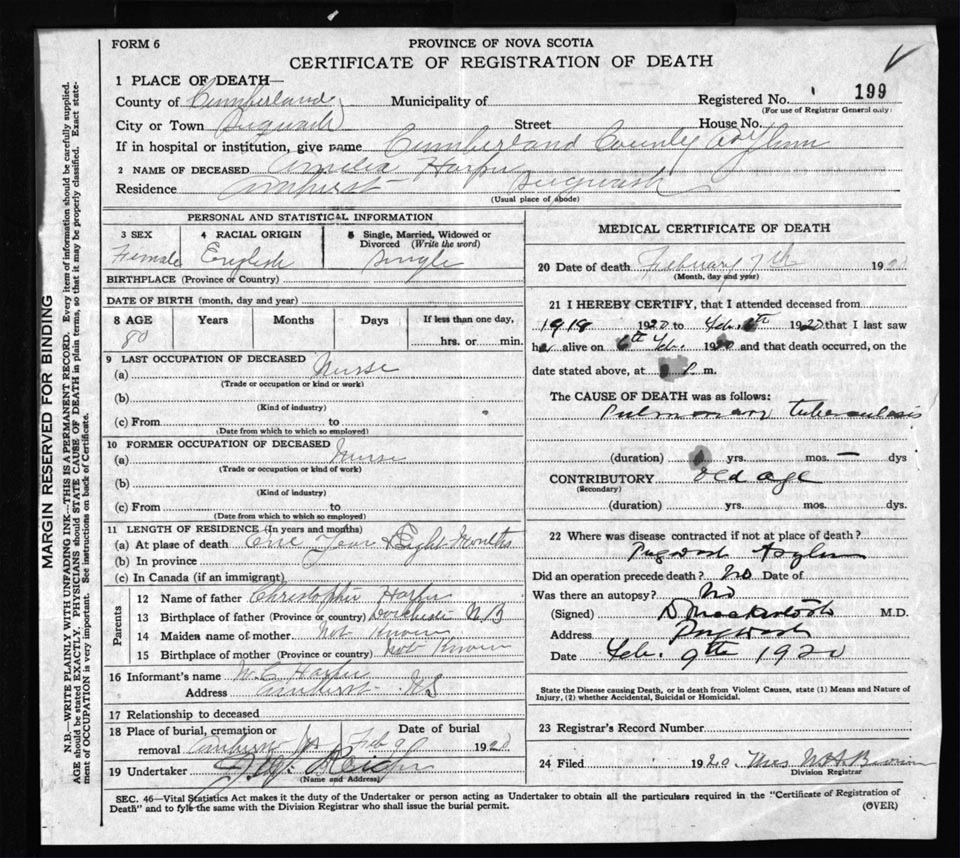 FORM 6
PROVINCE OF NOVA SCOTIA
CERTIFICATE OF REGISTRATION OF DEATH
1 PLACE OF DEATH—
County of Cumberland Municipality of Registered No. 199
(For use of Registrar General only)
City or Town Pugwash Street House No.
If in hospital or institution, give name Cumberland County Asylum
2 NAME OF DECEASED Amelia Harper
Residence Amherst Pugwash
(Usual place of abode)
PERSONAL AND STATISTICAL INFORMATION
3 SEX 4 RACIAL ORIGIN 5 Single, Married, Widowed or Divorced (Write the word)
Female English Single
BIRTHPLACE (Province or Country)
DATE OF BIRTH (month, day and year)
8 AGE Years Months Days If less than one day,
80 hrs. or min.
9 LAST OCCUPATION OF DECEASED
(a) Nurse
(Trade or occupation or kind or work)
(b)
(Kind of industry)
(c) From to
(Date from which to which so employed)
10 FORMER OCCUPATION OF DECEASED
(a) Nurse
(Trade or occupation or kind of work)
(b)
(Kind of industry)
(c) From to
(Date from which to which so employed)
11 LENGTH OF RESIDENCE (In years and months)
(a) At place of death One Year & Eight Months
(b) In province
(c) In Canada (if an immigrant)
Parents
12 Name of father Christopher Harper
13 Birthplace of father (Province or country) Dorchester N.B
14 Maiden name of mother Not Known
15 Birthplace of mother (Province or country) Not Known
16 Informant's name W. C. Harper
Address Amherst NS
17 Relationship to deceased
18 Place of burial, cremation or removal Amherst NS Date of burial Feb 9 1920
19 Undertaker
(Name and Address)
MEDICAL CERTIFICATE OF DEATH
20 Date of death February 7th 1920
(Month, day and year)
21 I HEREBY CERTIFY, that I attended deceased from
1918 1920 to Feb. 6th 1920 that I last saw
her alive on 6th Feb. 1920 and that death occurred, on the
date stated above, at P. m.
The CAUSE OF DEATH was as follows:
Pulmonary tuberculosis
(duration) yrs. mos. — dys
CONTRIBUTORY old age
(Secondary)
(duration) yrs. mos. dys.
22 Where was disease contracted if not at place of death?
Pugwash Asylum
Did an operation precede death? No Date of
Was there an autopsy? No
(Signed) D Mackintosh M.D.
Address Pugwash
Date Feb. 9th 1920
State the Disease causing Death, or in death from Violent Causes, state (1) Means and Nature of
Injury, (2) whether Accidental, Suicidal or Homicidal.
23 Registrar's Record Number
24 Filed 1920 Mrs
Division Registrar
SEC. 46—Vital Statistics Act makes it the duty of the Undertaker or person acting as Undertaker to obtain all the particulars required in the "Certificate of Registration of
Death" and to fyle the same with the Division Registrar who shall issue the burial permit. (OVER)
MARGIN RESERVED FOR BINDING
N.B.—WRITE PLAINLY WITH UNFADING INK—THIS IS A PERMANENT RECORD. Every item of information should be carefully supplied.
AGE should be stated EXACTLY. PHYSICIANS should STATE CAUSE OF DEATH in plain terms, so that it may be properly classified. Exact state-
ment of OCCUPATION is very important. See instructions on back of Certificate.